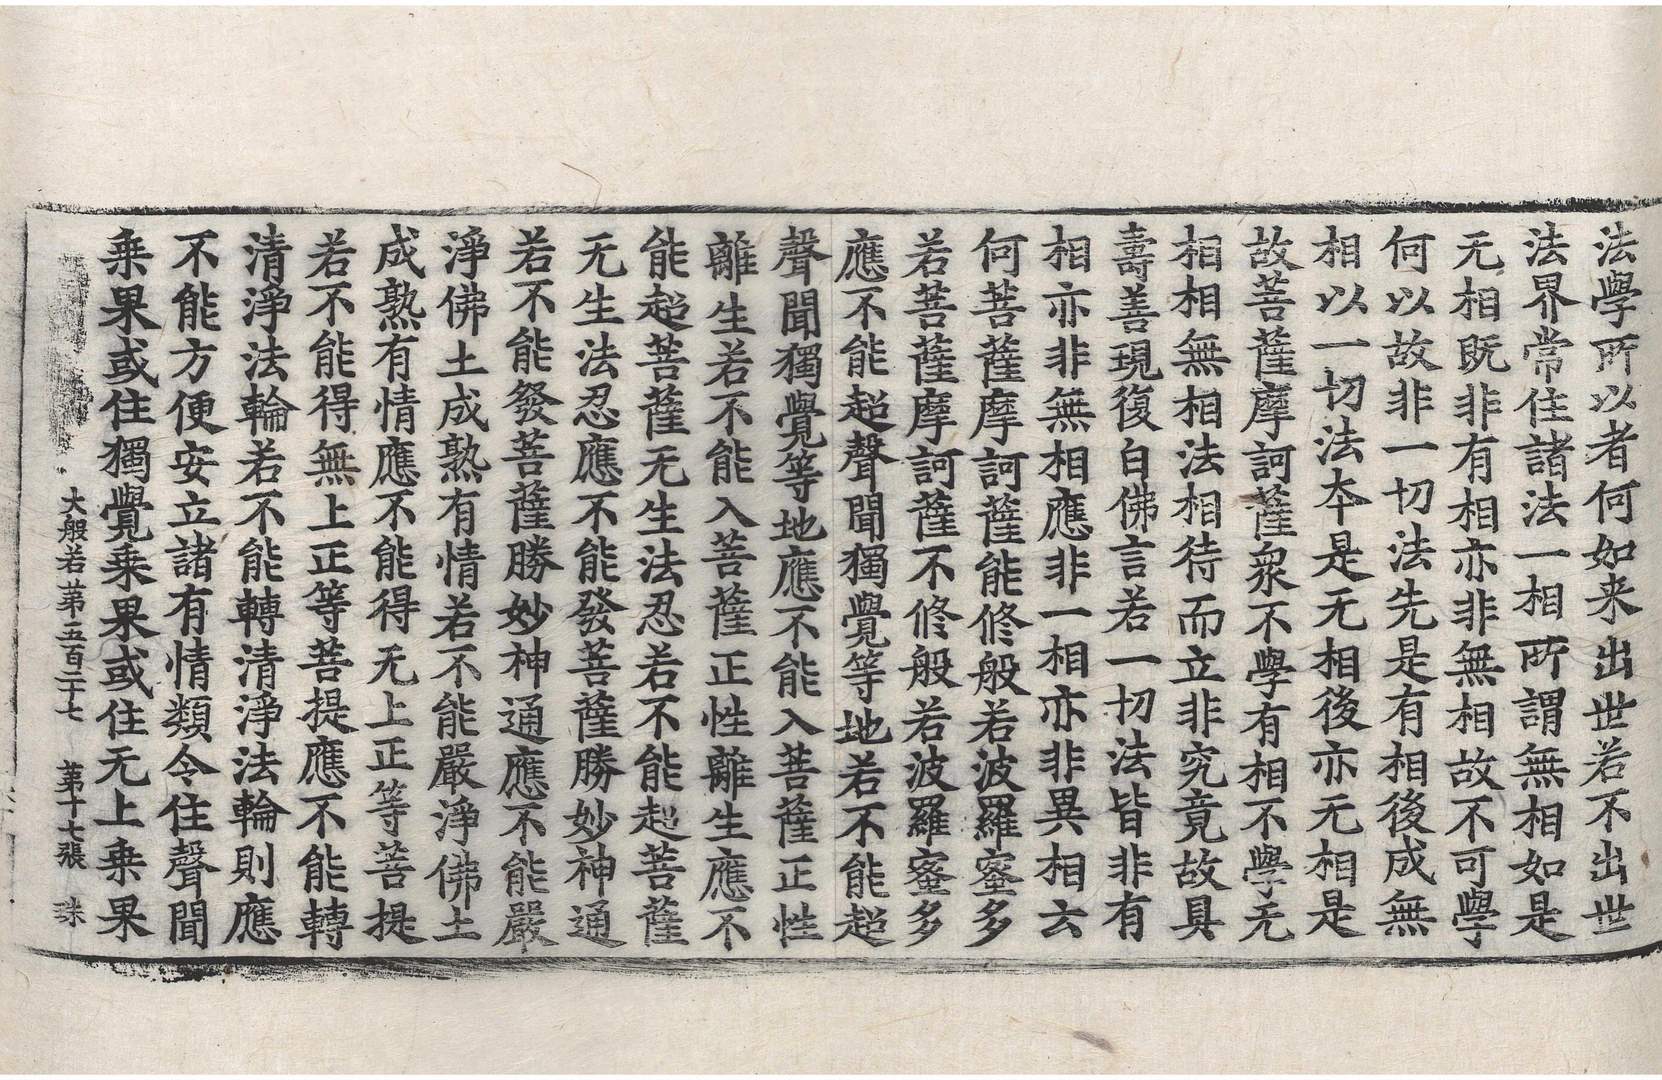 法學所以者何如来出世若不出世
法界常住諸法一相所謂無相如是
无相既非有相亦非無相故不可學
何以故非一切法先是有相後成無
相以一切法夲是无相後亦无相是
故菩薩摩訶薩衆不學有相不學无
相相無相法相待而立非究竟故具
壽善現復白佛言若一切法皆非有
相亦非無相應非一相亦非異相云
何菩薩摩訶薩能修般若波羅蜜多
若菩薩摩訶薩不修般若波羅蜜多
應不能超聲聞獨覺等地若不能超
聲聞獨覺等地應不能入菩薩正性
離生若不能入菩薩正性離生應不
能超菩薩无生法忍若不能超菩薩
无生法忍應不能發菩薩勝妙神通
若不能發菩薩勝妙神通應不能嚴
淨佛土成熟有情若不能嚴淨佛土
成熟有情應不能得无上正等菩提
若不能得無上正等菩提應不能轉
清淨法輪若不能轉清淨法輪則應
不能方便安立諸有情類令住聲聞
乗果或住獨覺乗果或住无上乗果
大般若第五百二十七 第十七張 珠